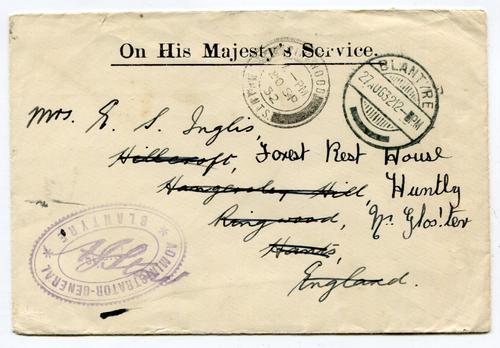 On His Majesty's Service.
BLANTYRE
27 AUG 32 12-PM
RINGWOOD
-PM
20 SP
32
HANTS
Mrs. E. S. Inglis,
Hillcroft, Forest Rest House
Hangersley Hill, Huntly
Ringwood, Nr. Glos'ter
Hants,
England.
ADMINISTRATOR-GENERAL
* BLANTYRE *